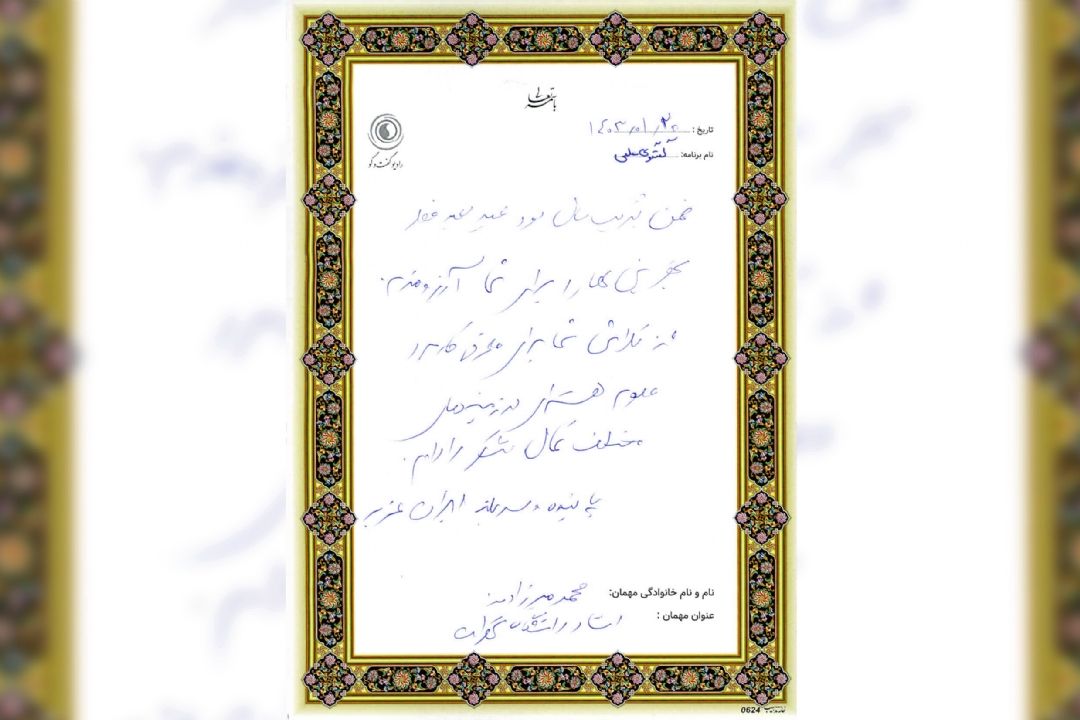 باسمه تعالی
رادیو گفت و گو
تاریخ: ۱۴۰۳/۰۱/۲۰
نام برنامه: گفتگوی علمی
ضمن تبریک سال نو و عید سعید فطر
بهترین‌ها را برای شما آرزومندم.
از تلاش شما برای معرفی کاربرد
علوم هسته‌ای در زمینه‌های
مختلف کمال تشکر را دارم.
پاینده و سربلند ایران عزیز
نام و نام خانوادگی مهمان: محمد
عنوان مهمان: استاد دانشگاه تهران
0624